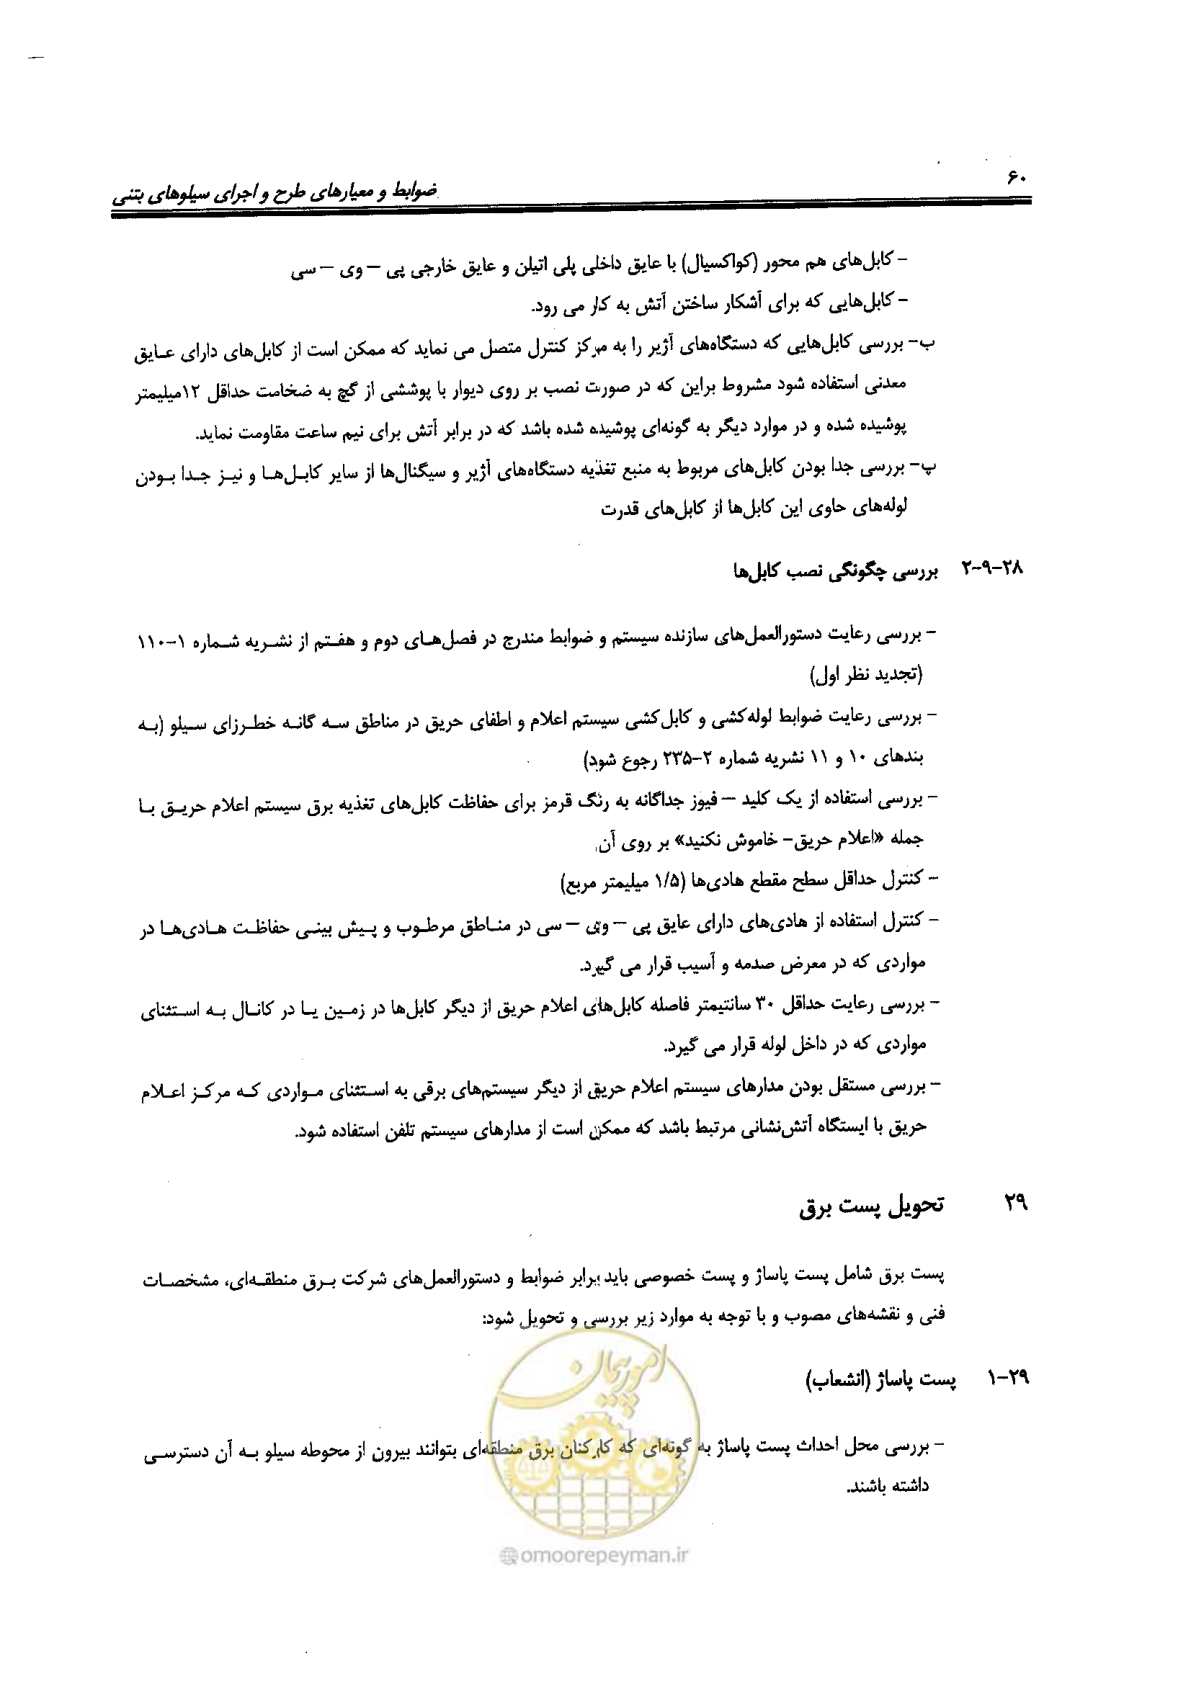 ۶۰
ضوابط و معیارهای طرح و اجرای سیلوهای بتنی
- کابل‌های هم محور (کواکسیال) با عایق داخلی پلی اتیلن و عایق خارجی پی – وی – سی
- کابل‌هایی که برای آشکار ساختن آتش به کار می رود.
ب- بررسی کابل‌هایی که دستگاه‌های آژیر را به مرکز کنترل متصل می نماید که ممکن است از کابل‌های دارای عـایق
معدنی استفاده شود مشروط براین که در صورت نصب بر روی دیوار با پوششی از گچ به ضخامت حداقل ۱۲میلیمتر
پوشیده شده و در موارد دیگر به گونه‌ای پوشیده شده باشد که در برابر آتش برای نیم ساعت مقاومت نماید.
پ- بررسی جدا بودن کابل‌های مربوط به منبع تغذیه دستگاه‌های آژیر و سیگنال‌ها از سایر کابـل‌هـا و نیـز جـدا بـودن
لوله‌های حاوی این کابل‌ها از کابل‌های قدرت
۲-۹-۲۸ بررسی چگونگی نصب کابل‌ها
- بررسی رعایت دستورالعمل‌های سازنده سیستم و ضوابط مندرج در فصل‌هـای دوم و هفـتم از نشـریه شـماره ۱-۱۱۰
(تجدید نظر اول)
- بررسی رعایت ضوابط لوله‌کشی و کابل‌کشی سیستم اعلام و اطفای حریق در مناطق سـه گانـه خطـرزای سـیلو (بـه
بندهای ۱۰ و ۱۱ نشریه شماره ۲-۲۳۵ رجوع شود)
- بررسی استفاده از یک کلید – فیوز جداگانه به رنگ قرمز برای حفاظت کابل‌های تغذیه برق سیستم اعلام حریـق بـا
جمله «اعلام حریق- خاموش نکنید» بر روی آن
- کنترل حداقل سطح مقطع هادی‌ها (۱/۵ میلیمتر مربع)
- کنترل استفاده از هادی‌های دارای عایق پی – وی – سی در منـاطق مرطـوب و پـیش بینـی حفاظـت هـادی‌هـا در
مواردی که در معرض صدمه و آسیب قرار می گیرد.
- بررسی رعایت حداقل ۳۰ سانتیمتر فاصله کابل‌های اعلام حریق از دیگر کابل‌ها در زمـین یـا در کانـال بـه اسـتثنای
مواردی که در داخل لوله قرار می گیرد.
- بررسی مستقل بودن مدارهای سیستم اعلام حریق از دیگر سیستم‌های برقی به اسـتثنای مـواردی کـه مرکـز اعـلام
حریق با ایستگاه آتش‌نشانی مرتبط باشد که ممکن است از مدارهای سیستم تلفن استفاده شود.
۲۹ تحویل پست برق
پست برق شامل پست پاساژ و پست خصوصی باید برابر ضوابط و دستورالعمل‌های شرکت بـرق منطقـه‌ای، مشخصـات
فنی و نقشه‌های مصوب و با توجه به موارد زیر بررسی و تحویل شود:
۱-۲۹ پست پاساژ (انشعاب)
- بررسی محل احداث پست پاساژ به گونه‌ای که کارکنان برق منطقه‌ای بتوانند بیرون از محوطه سیلو بـه آن دسترسـی
داشته باشند.
امور پیمان
@omoorepeyman.ir